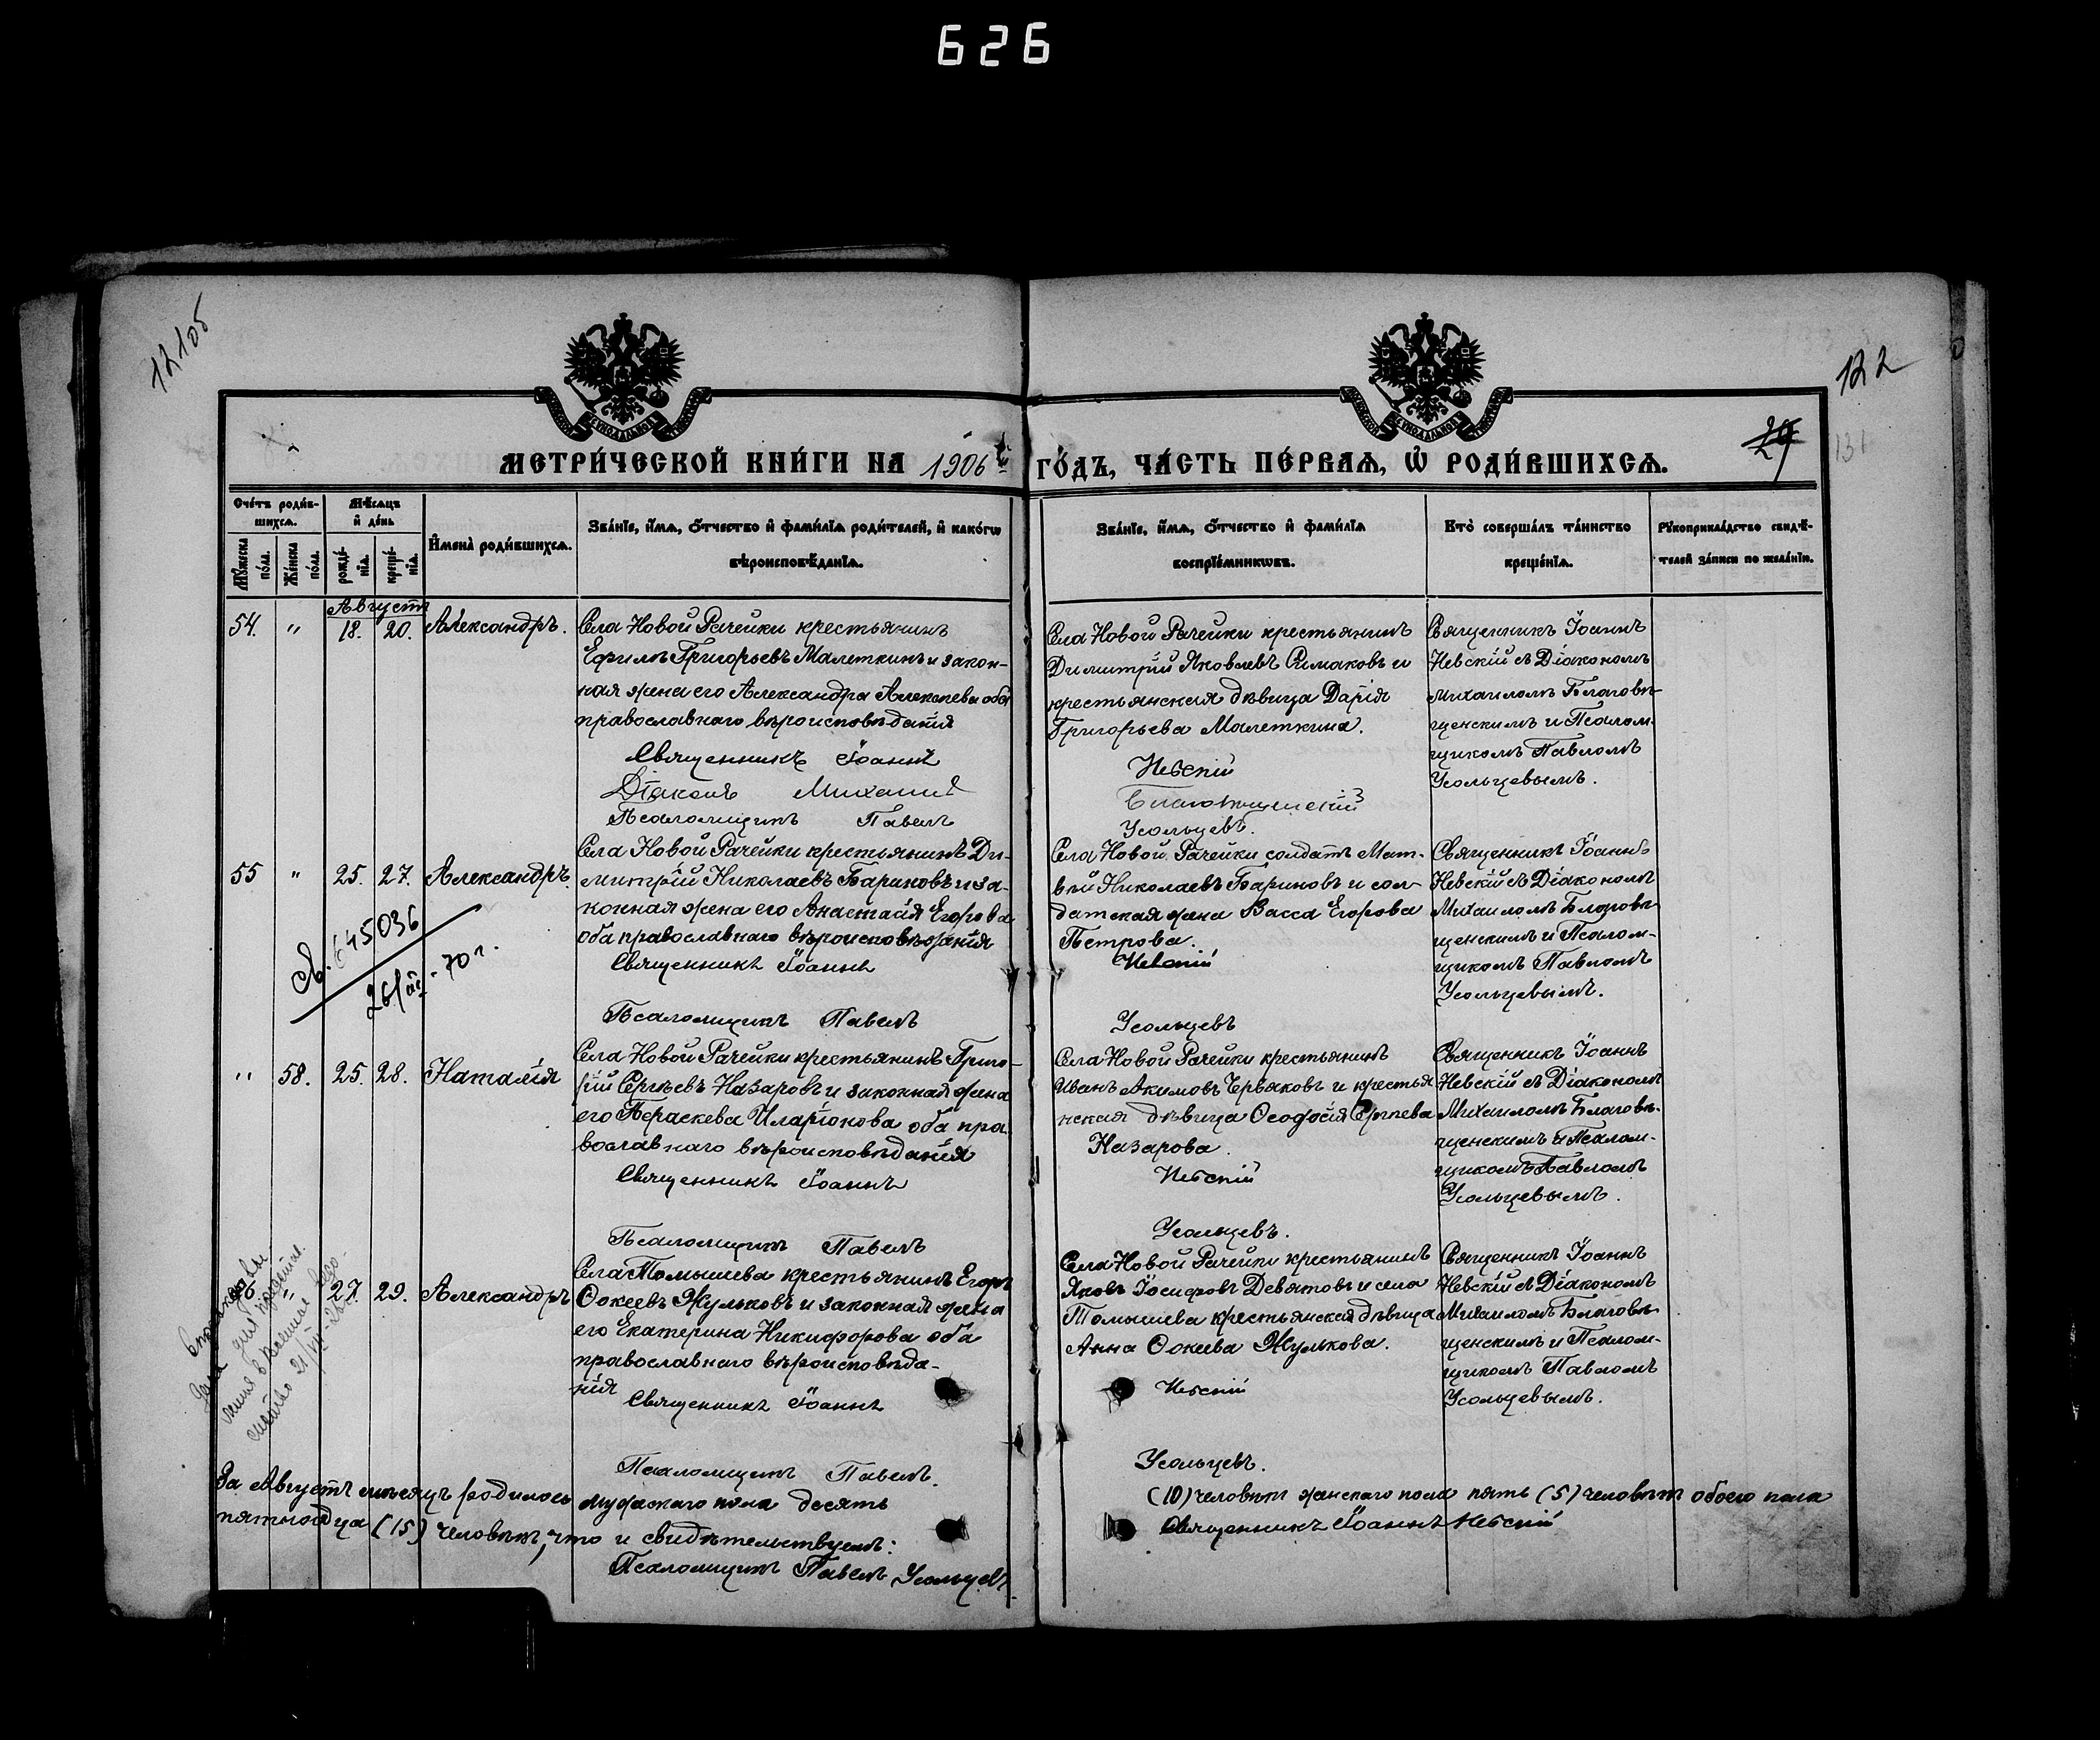 626
121об
122
29
131
МЕТРИ́ЧЕСКОЙ КНИ́ГИ НА 1906й ГО́ДЪ, ЧА́СТЬ ПЕ́РВАѦ, Ѽ РОДИ́ВШИХСѦ.
Сче́тъ роди́в-
шихсѧ.
Мꙋ́жеска по́ла.
Же́нска по́ла.
Мѣ́сѧцъ
и҆ де́нь
рожде́-
нїѧ.
креще́-
нїѧ.
И҆мена̀ роди́вшихсѧ.
Зва́нїе, и҆́мѧ, ѻ҆́тчество и҆ фами́лїѧ роди́телей, и҆ како́гѡ
вѣроисповѣ́данїѧ.
Зва́нїе, и҆́мѧ, ѻ҆́тчество и҆ фами́лїѧ
воспрїе́мникѡвъ.
Кто̀ соверша́лъ та́инство
креще́нїѧ.
Рꙋкоприкла́дство свидѣ́-
телей за́писи по жела́нїю.
Августъ
54. " 18. 20. Александръ.
Села Новой Рачейки крестьянинъ
Ефимъ Григорьевъ Малеткинъ и закон-
ная жена его Александра Алексеева оба
православнаго вѣроисповѣданія
Священникъ Іоаннъ
Діаконъ Михаилъ
Псаломщикъ Павелъ
Села Новой Рачейки крестьянинъ
Димитрій Яковлевъ Симаковъ и
крестьянская дѣвица Дарія
Григорьева Малеткина.
Невскій
Благовѣщенскій
Усольцевъ.
Священникъ Іоаннъ
Невскій съ Діакономъ
Михаиломъ Благовѣ-
щенскимъ и Псалом-
щикомъ Павломъ
Усольцевымъ.
55 " 25. 27. Александръ.
св. 645036
26/ -70 г.
Села Новой Рачейки крестьянинъ Ди-
митрій Николаевъ Бариновъ и за-
конная жена его Анастасія Егорова
оба православнаго вѣроисповѣданія
Священникъ Іоаннъ
Псаломщикъ Павелъ
Села Новой Рачейки солдатъ Мат-
вѣй Николаевъ Бариновъ и сол-
датская жена Васса Егорова
Петрова.
Невскій
Усольцевъ
Священникъ Іоаннъ
Невскій съ Діакономъ
Михаиломъ Благовѣ-
щенскимъ и Псалом-
щикомъ Павломъ
Усольцевымъ.
" 58. 25. 28. Наталія
Села Новой Рачейки крестьянинъ Григо-
рій Сергѣевъ Назаровъ и законная жена
его Параскева Иларіонова оба пра-
вославнаго вѣроисповѣданія
Священникъ Іоаннъ
Псаломщикъ Павелъ
Села Новой Рачейки крестьянинъ
Иванъ Акимовъ Червяковъ и крестья
нская дѣвица Ѳеодосія Сергѣева
Назарова.
Невскій
Усольцевъ.
Священникъ Іоаннъ
Невскій съ Діакономъ
Михаиломъ Благовѣ-
щенскимъ и Псалом-
щикомъ Павломъ
Усольцевымъ.
56 " 27. 29. Александръ
дана для
Села Томышева крестьянинъ Егоръ
Ѳокеевъ Жульковъ и законная жена
его Екатерина Никифорова оба
православнаго вѣроисповѣда-
нія
Священникъ Іоаннъ
Псаломщикъ Павелъ
Села Новой Рачейки крестьянинъ
Яковъ Іосифовъ Девятовъ и села
Томышева крестьянская дѣвица
Анна Ѳокеева Жулькова.
Невскій
Усольцевъ.
Священникъ Іоаннъ
Невскій съ Діакономъ
Михаиломъ Благовѣ-
щенскимъ и Псалом-
щикомъ Павломъ
Усольцевымъ.
За Августъ мѣсяцъ родилось мужскаго пола десять (10) человѣкъ женскаго пола пять (5) человѣкъ обоего пола
пятнадца (15) человѣкъ, что и свидѣтельствуемъ: Священникъ Іоаннъ Невскій
Псаломщикъ Павелъ Усольцевъ.